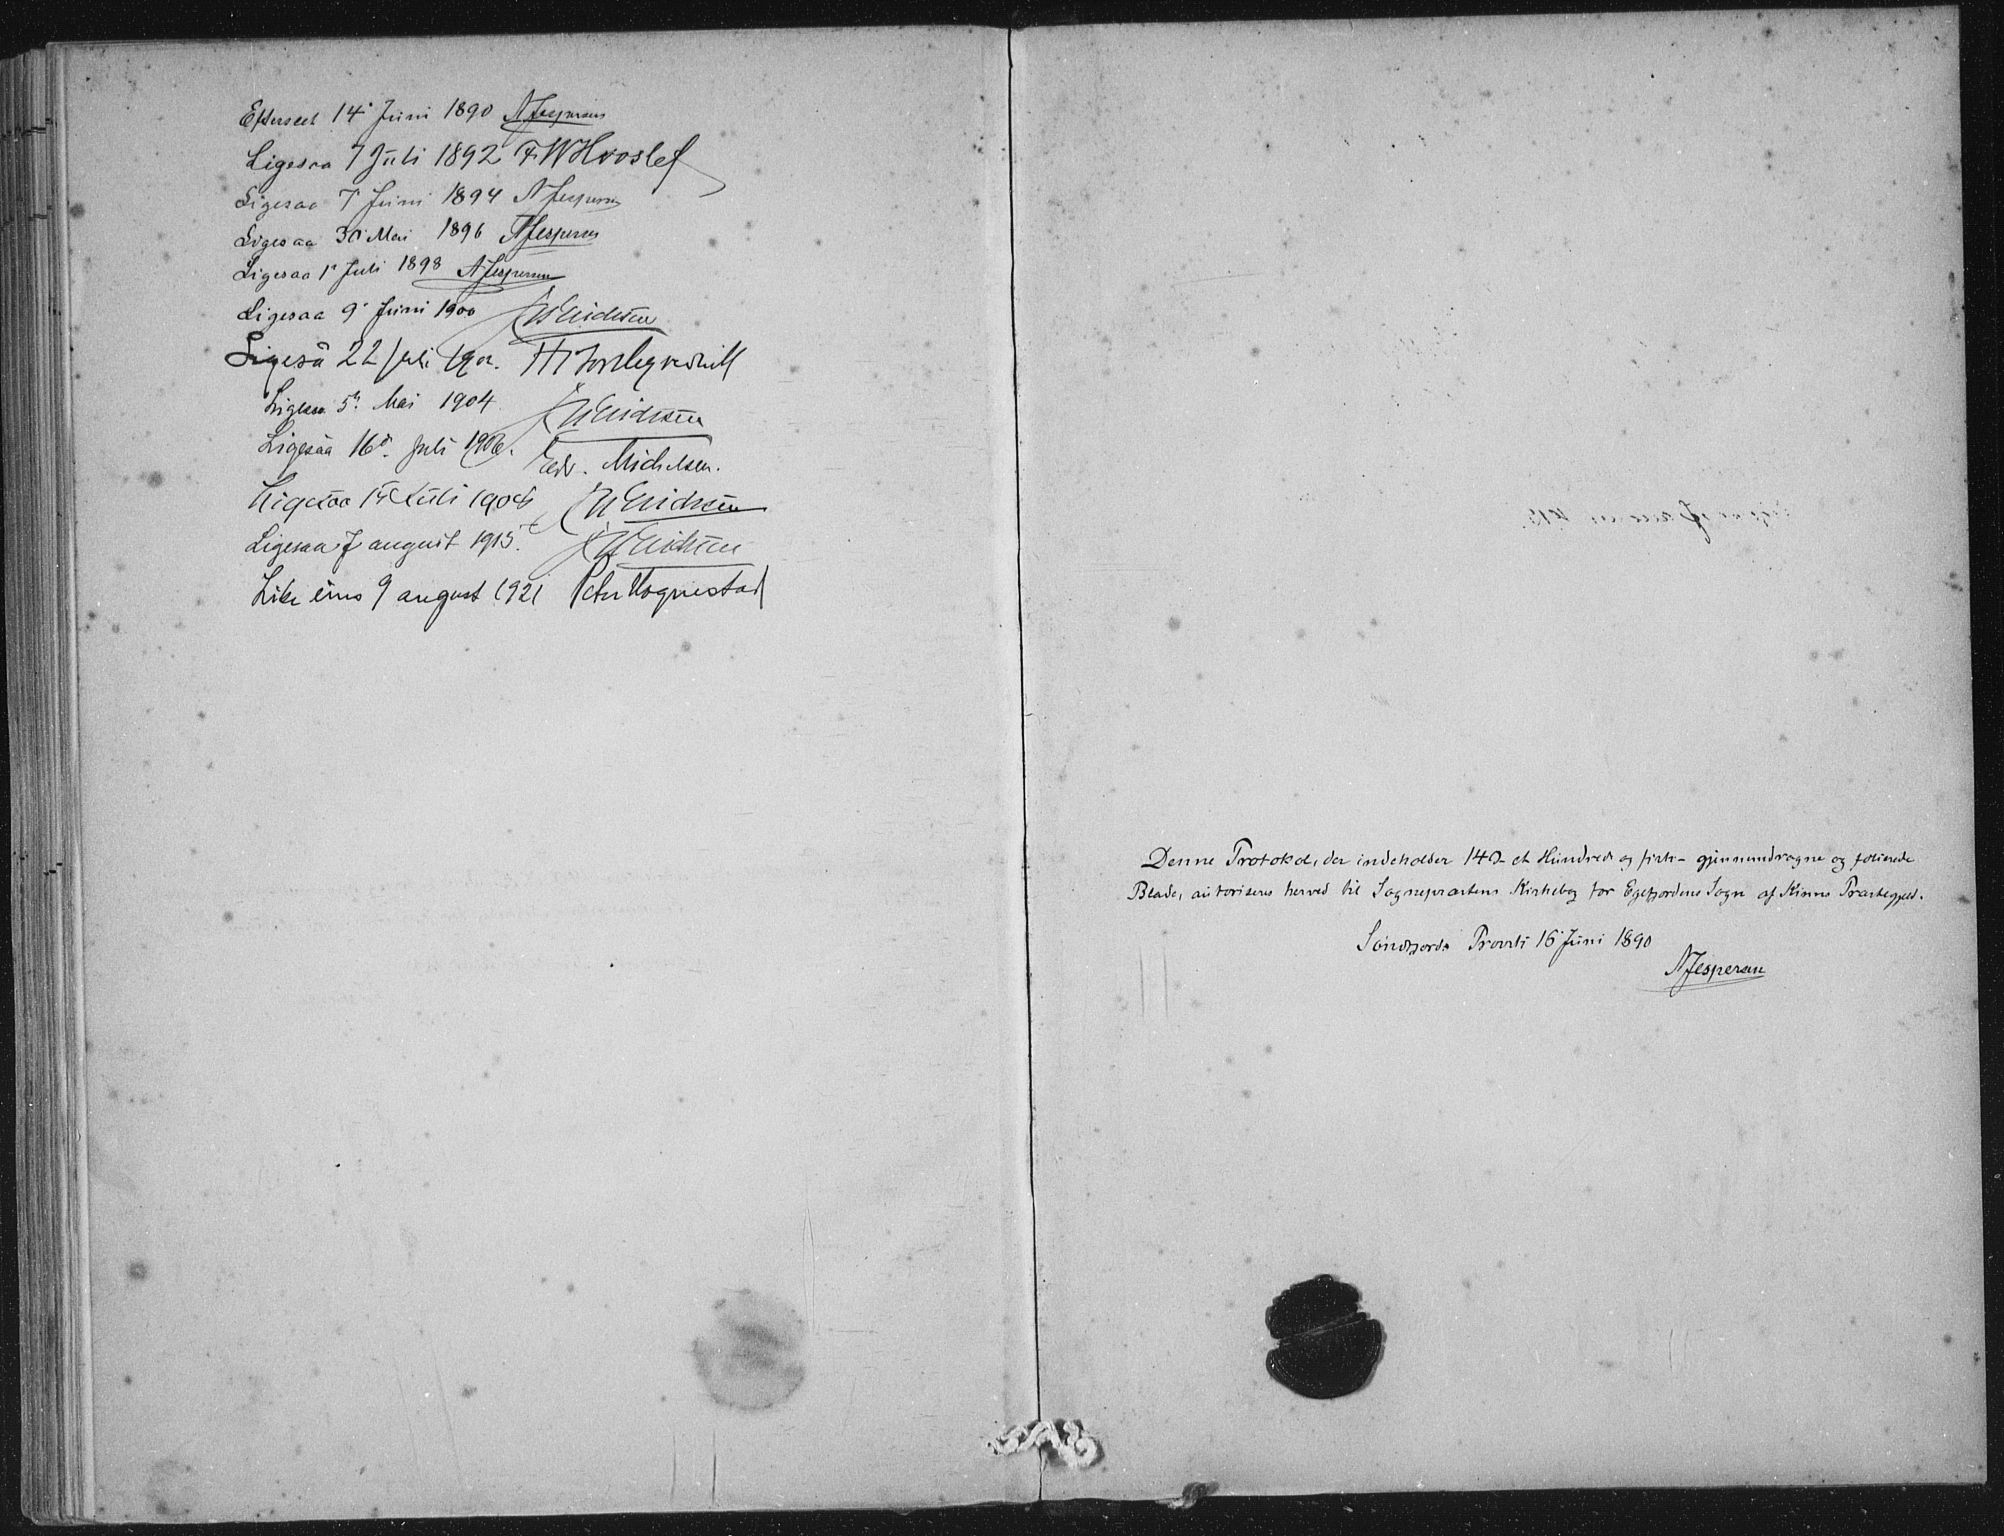 Efterseet 14' Juni 1890 NJespersen
Ligesaa 7 Juli 1892 F W Hvoslef
Ligesaa 7' Juni 1894 NJespersen
Ligesaa 30' Mai 1896 NJespersen
Ligesaa 1' Juli 1898 NJespersen
Ligesaa 9' Juni 1900 Erichsen
Ligeså 22 Juli 1902.
Ligesaa 5te Mai 1904 Erichsen
Ligesaa 16de Juli 1906. Edv. Michelsen.
Ligesaa Juli Erichsen
Ligesaa 7 august 1915. Erichsen
Like eins 9 august 1921 Peter Hognestad
Denne Protokol, der indeholder 140 - et Hundrede og firti - gjennemdragne og folierede
Blade, autoriseres herved til Sognepræstens Kirkebog for Egefjordens Sogn af Kinns Præstegjeld.
Søndfjords Provsti 16' Juni 1890
NJespersen